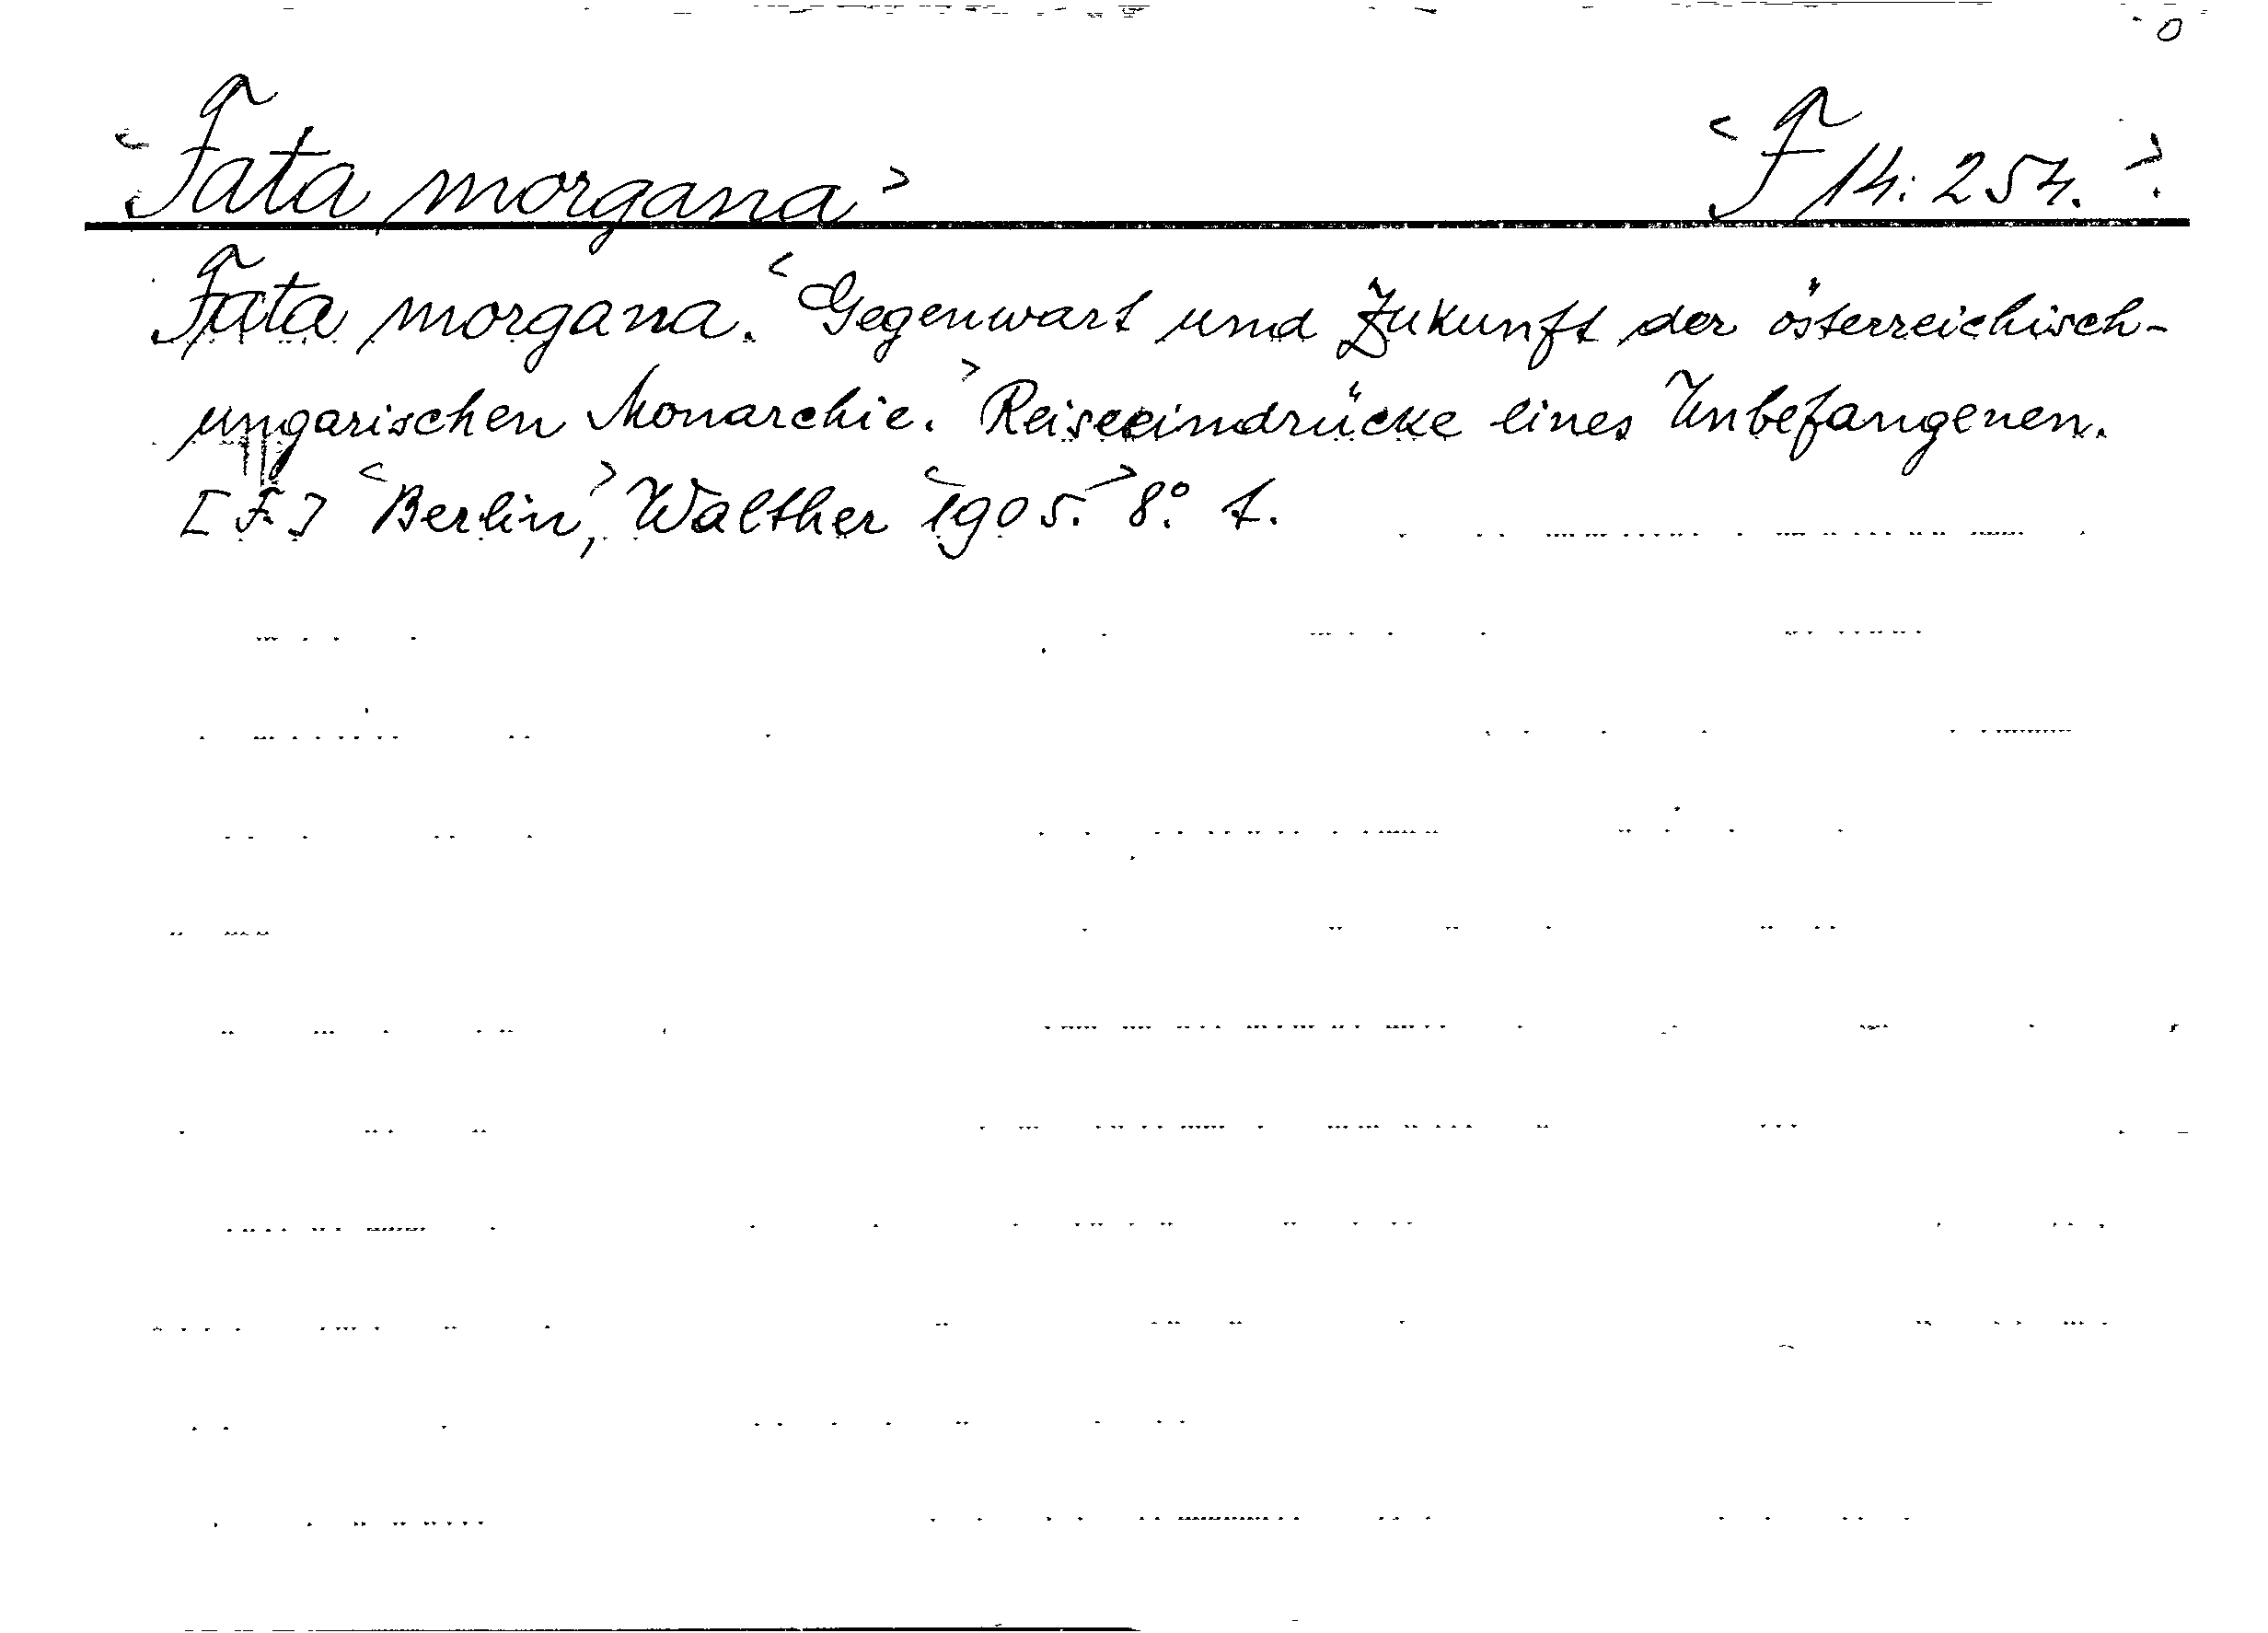 <Fata morgana> <F 14:254.>
Fata morgana. <Gegenwart und Zukunft der österreichisch-
ungarischen Monarchie.> Reiseeindrücke eines Unbefangenen.
[F.] <Berlin,> Walther <1905.> 8.° 1.